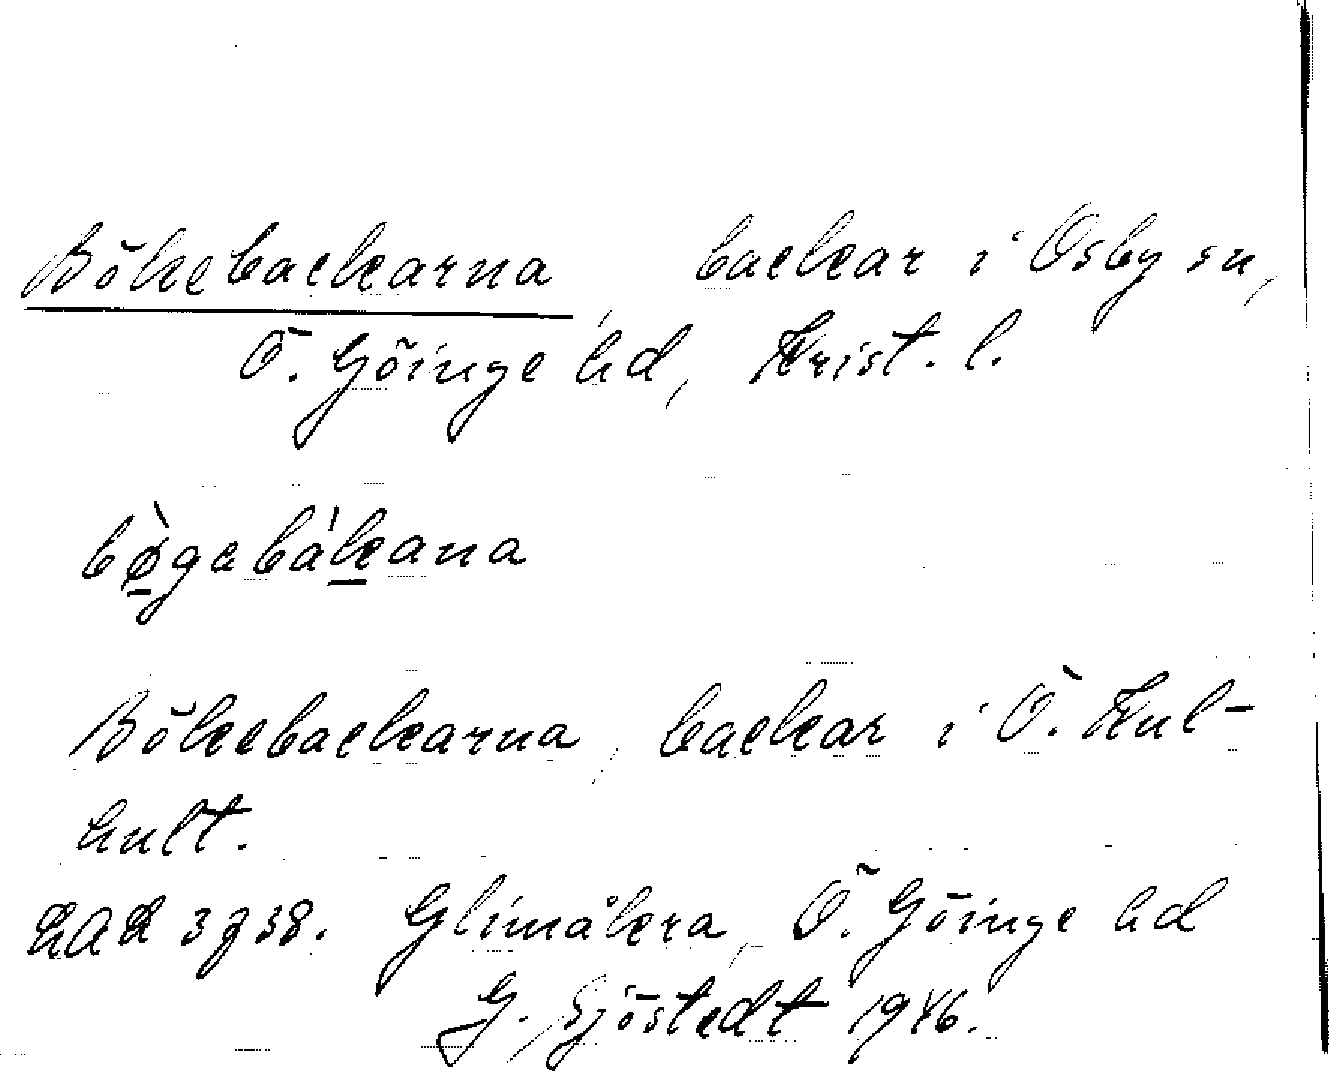 Bökebackarna, backar i Osby sn,
Ö. Göinge hd, Krist. l.
bø̀gabákana
Bökebackarna, backar i Ö. Kul-
hult.
LAL 3738. Glimåkra, Ö. Göinge hd
G. Sjöstedt 1946.